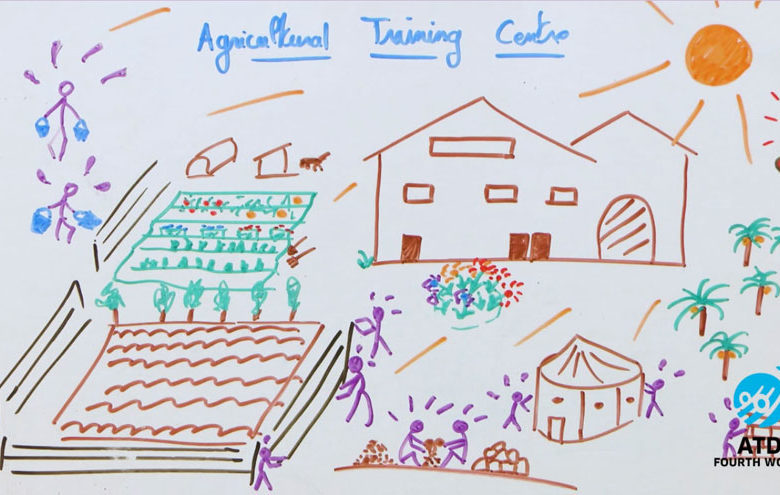 Agricultural Training Centre
ATD
FOURTH WO